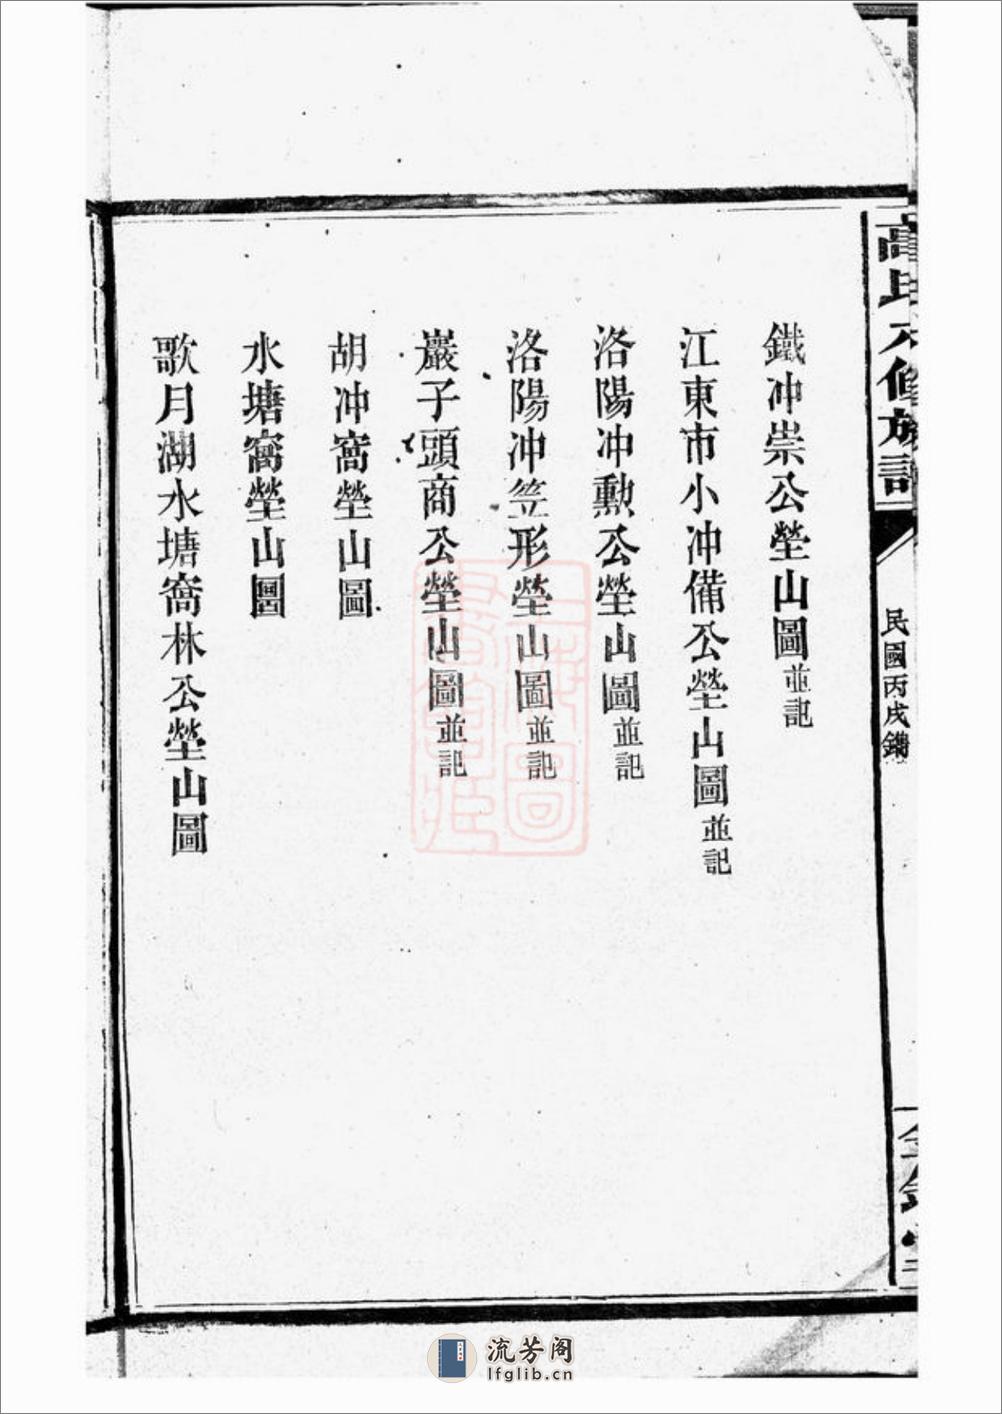 高氏六修族譜
民國丙戌鐫
鐵冲崇公塋山圖並記
江東市小冲備公塋山圖並記
洛陽冲勲公塋山圖並記
洛陽冲笠形塋山圖並記
巖子頭商公塋山圖並記
胡冲窩塋山圖
水塘窩塋山圖
歌月湖水塘窩林公塋山圖
流芳阁
lfglib.cn